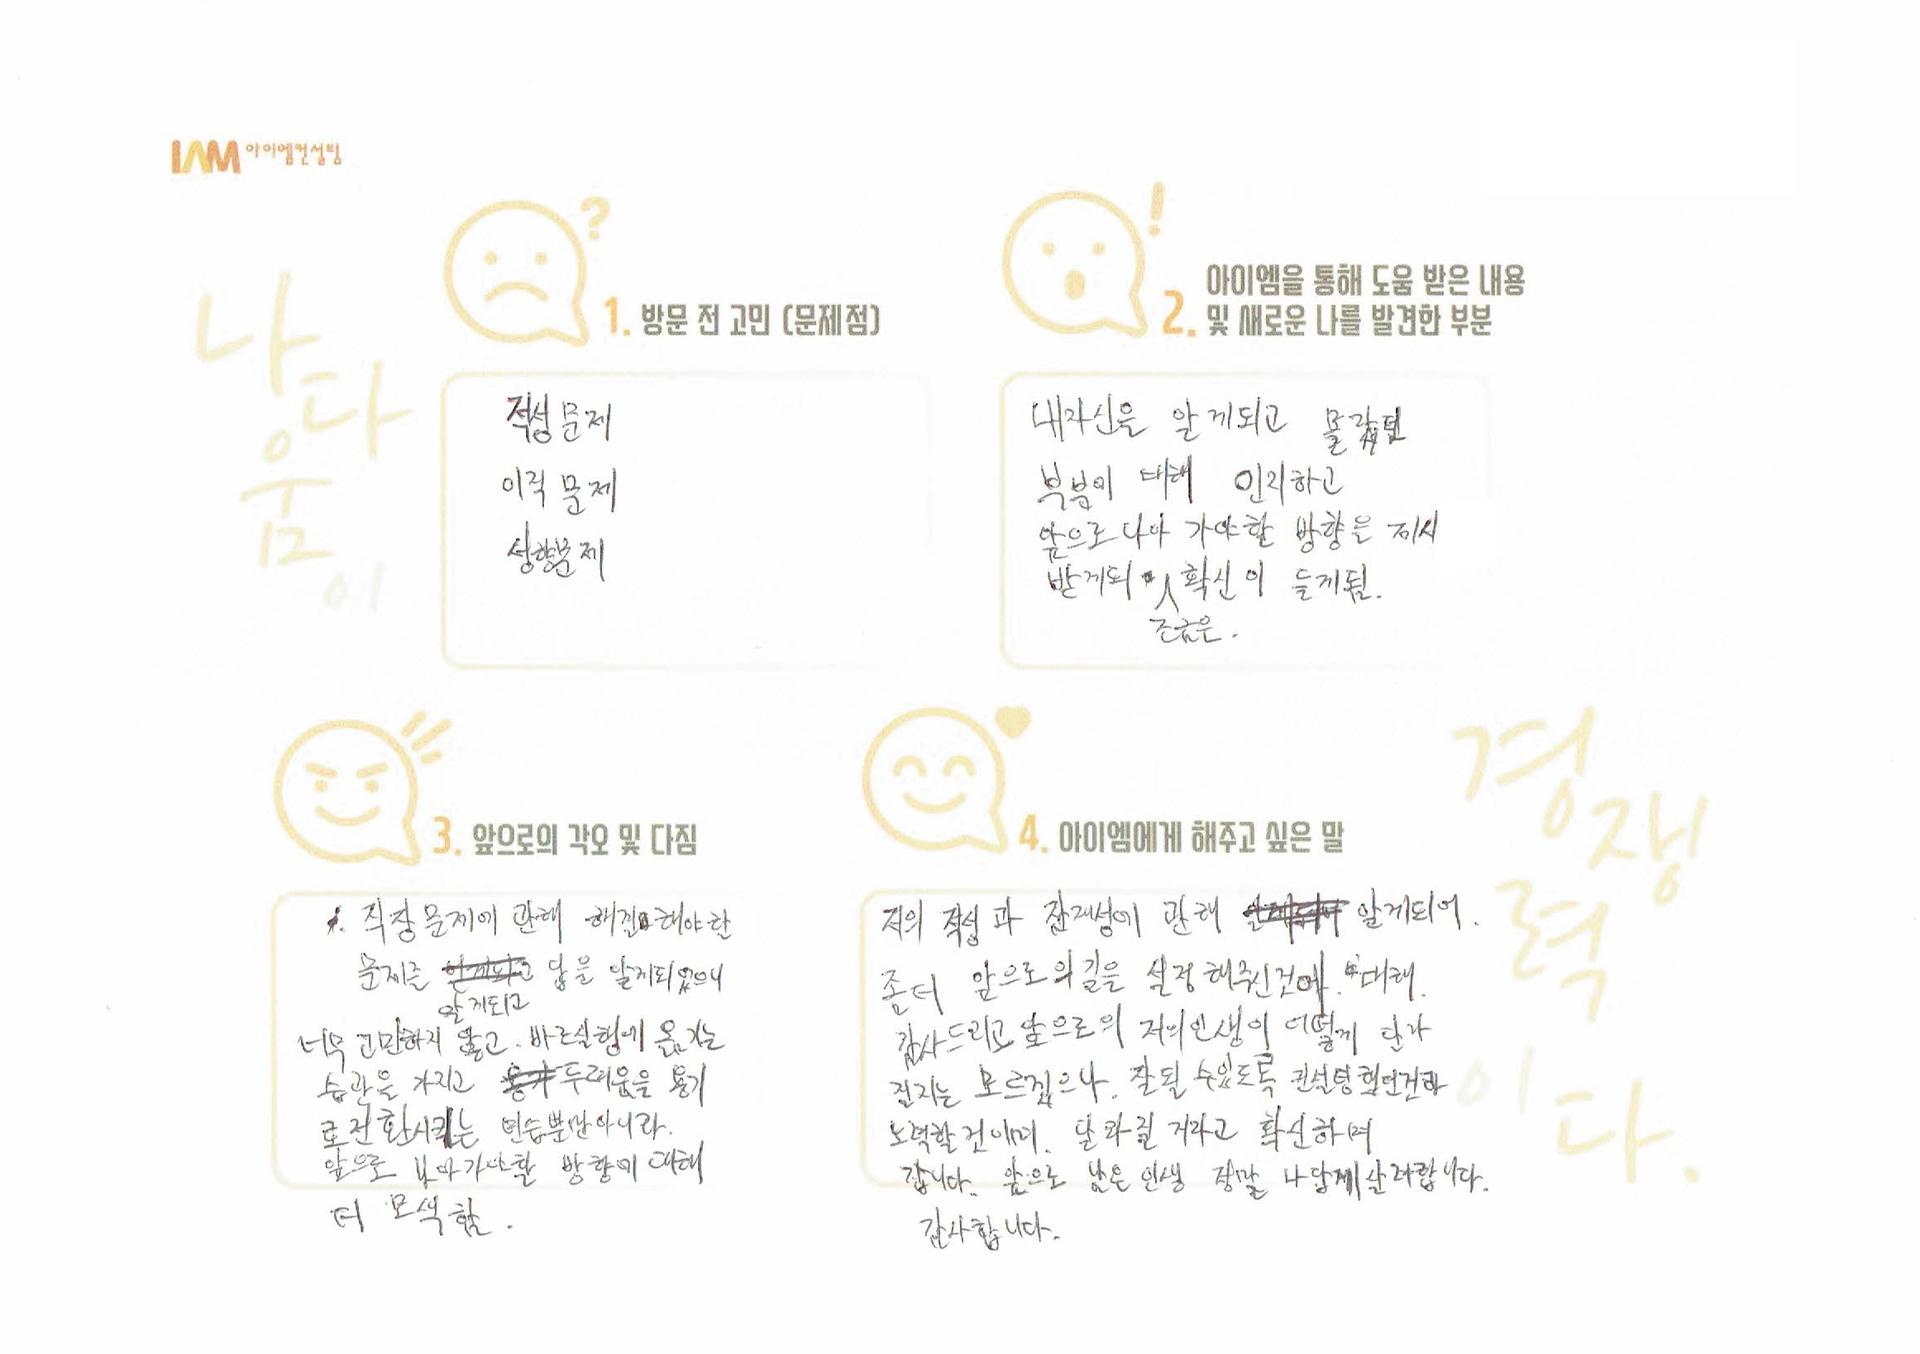 IAM 아이엠컨설팅
나다움이
1. 방문 전 고민 (문제점)
적성문제
이직 문제
성향문제
2. 아이엠을 통해 도움 받은 내용
및 새로운 나를 발견한 부분
내자신을 알게되고 몰랐던
부분이 대해 인지하고
앞으로 나아 가야할 방향을 제시
받게되 확신이 들게됨.
조금은.
3. 앞으로의 각오 및 다짐
1. 직장문제에 관해 해야한
문제를 답을 알게되었으니
알게되고
너무 고민하지 않고. 바로실행에 옮기는
습관을 가지고 두려움을 용기
로전환시키는 연습뿐만아니라.
앞으로 나아가야할 방향에 대해
더 모색함.
4. 아이엠에게 해주고 싶은 말
저의 적성과 잠재성에 관해 알게되어.
좀더 앞으로의길을 설정해주신것에. 대해.
감사드리고 앞으로의 저의인생이 어떻게 달라
질지는 모르겠으나. 잘될 수있도록 컨설팅
노력할것이며. 달라질 거라고 확신하며
갑니다. 앞으로 남은 인생 정말 나답게 살랍니다.
감사합니다.
경쟁력이다.